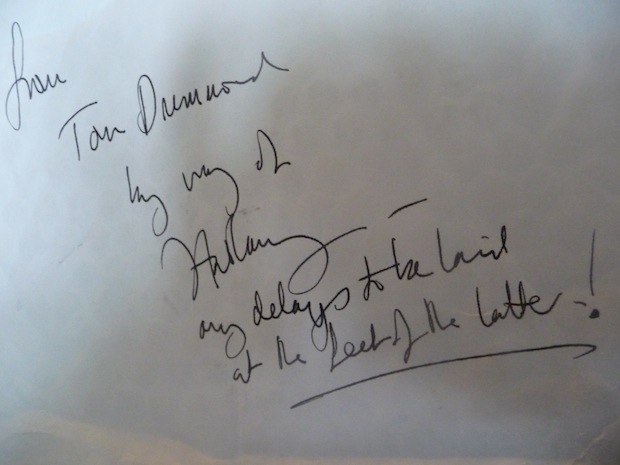 from
Tom Drummond
by way of
Hillary —
any delays to be laid
at the feet of the latter - !